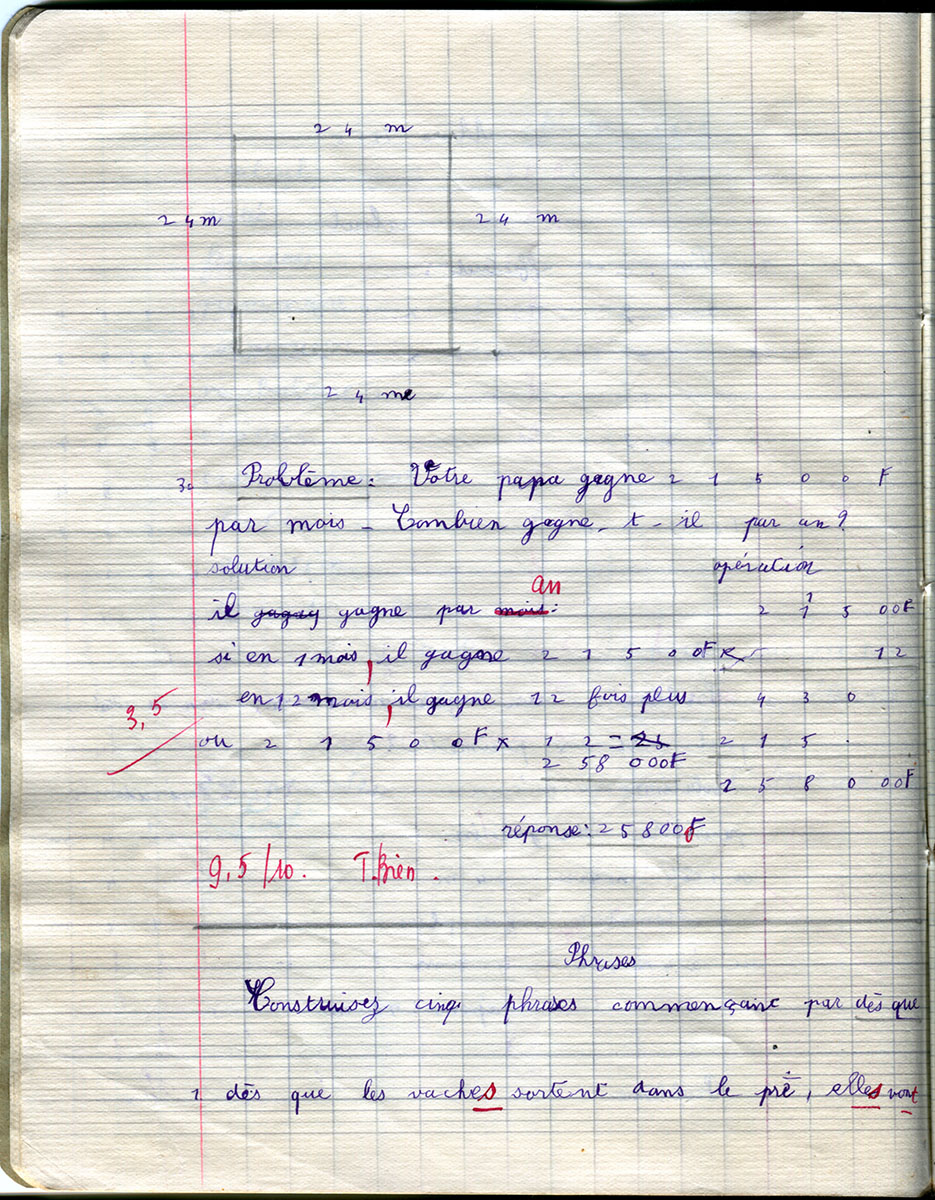 24 m
24m 24 m
24 me
3o Problème : Votre papa gagne 21500F
par mois - Combien gagne-t-il par an ?
solution opération
an
il gagne par mois : 21500F
si en 1 mois, il gagne 21500F x 12
en 12 mois, il gagne 12 fois plus 430
3,5
ou 21500F x 12 = 25 215 .
258000F
258000F
réponse : 25800F
9,5/10. T.Bien.
Phrases
Construisez cinq phrases commençant par dès que
1 dès que les vaches sortent dans le pré, elles vont